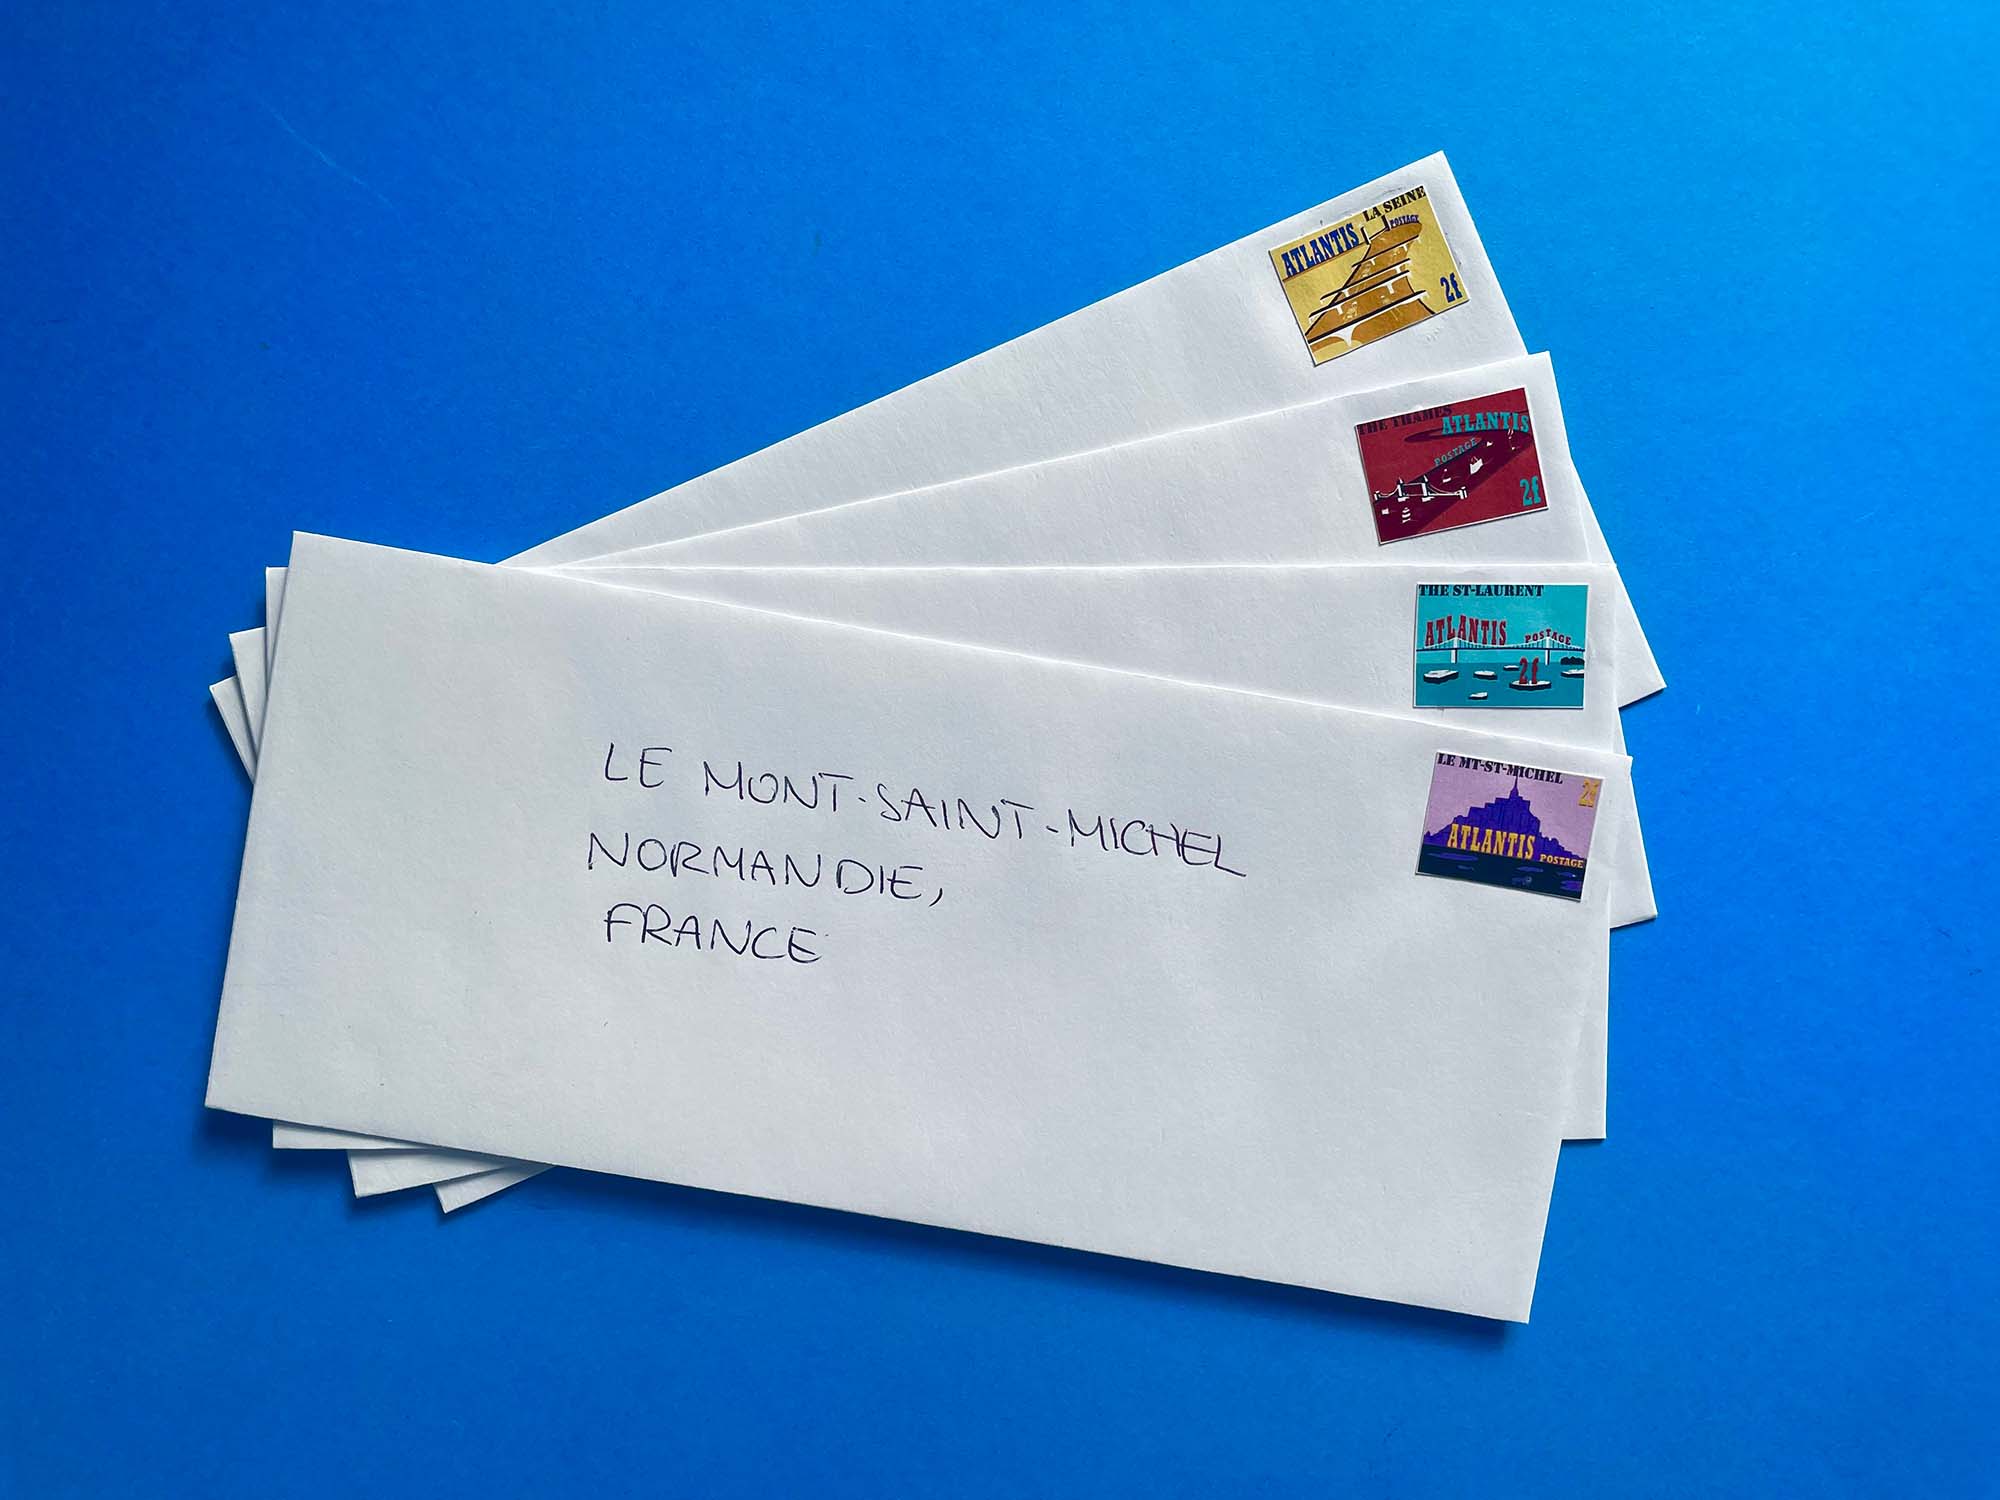 LA SEINE
ATLANTIS POSTAGE
2f
THE THAMES
ATLANTIS
POSTAGE
2f
THE ST-LAURENT
ATLANTIS POSTAGE
2f
LE MT-ST-MICHEL
2f
ATLANTIS POSTAGE
LE MONT-SAINT-MICHEL
NORMANDIE,
FRANCE